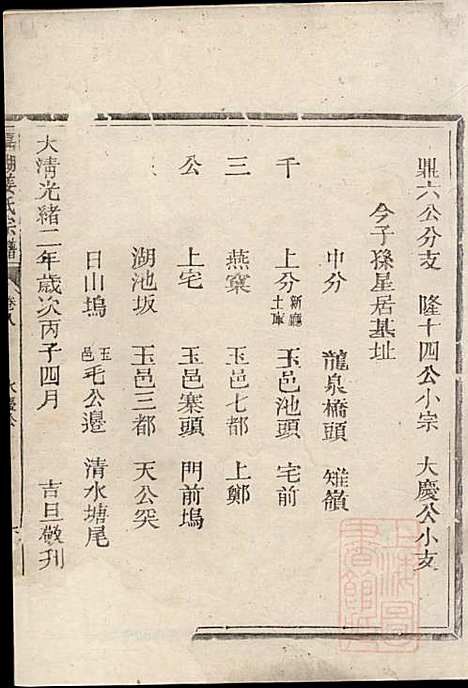 鼎六公分支 隆十四公小宗 大慶公小支
今子孫星居基址
中分 龍泉橋頭 雉嶺
千 上分 新廳土庫 玉邑池頭 宅前
三 燕窠 玉邑七都 上鄭
公 上宅 玉邑寨頭 門前塢
湖池坂 玉邑三都 天公突
日山塢 玉邑毛公邊 清水塘尾
大清光緒二年歲次丙子四月 吉旦敬刊
姜氏宗譜
上海圖書館藏